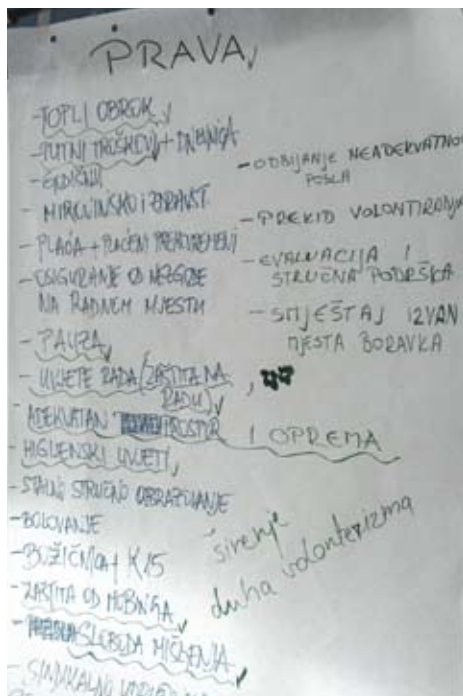 PRAVA
- TOPLI OBROK
- PUTNI TROŠKOVI + DNEVNICA
- MIROVINSKO I ZDRAVST.
- PLAĆA + PLAĆENI PREKOVREMENI
- OSIGURANJE OD NEZGODE
NA RADNOM MJESTU
- PAUZA
- UVJETE RADA (ZAŠTITA NA
RADU)
ADEKVATAN PROSTOR I OPREMA
- HIGIJENSKI UVJETI
- STALNO STRUČNO OBRAZOVANJE
- BOLOVANJE
- BOŽIĆNICA +
- ZAŠTITA OD MOBINGA
- SLOBODA MIŠLJENJA
- SINDIKALNO
- ODBIJANJE NEADEKVATNOG
POSLA
- PREKID VOLONTIRANJA
- EVALUACIJA I
STRUČNA PODRŠKA
- SMJEŠTAJ IZVAN
MJESTA BORAVKA
širenje
duha volonterizma